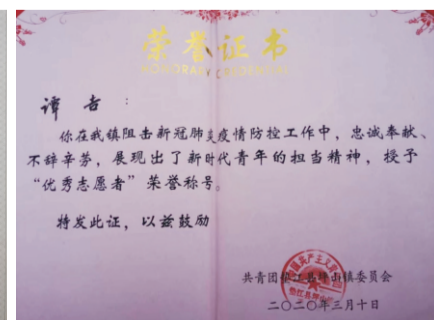 荣誉证书
HONORARY CREDENTIAL
谭吉：
你在我镇阻击新冠肺炎疫情防控工作中，忠诚奉献、
不辞辛劳，展现出了新时代青年的担当精神，授予
“优秀志愿者”荣誉称号。
特发此证，以兹鼓励
共青团垫江县坪山镇委员会
二〇二〇年三月十日